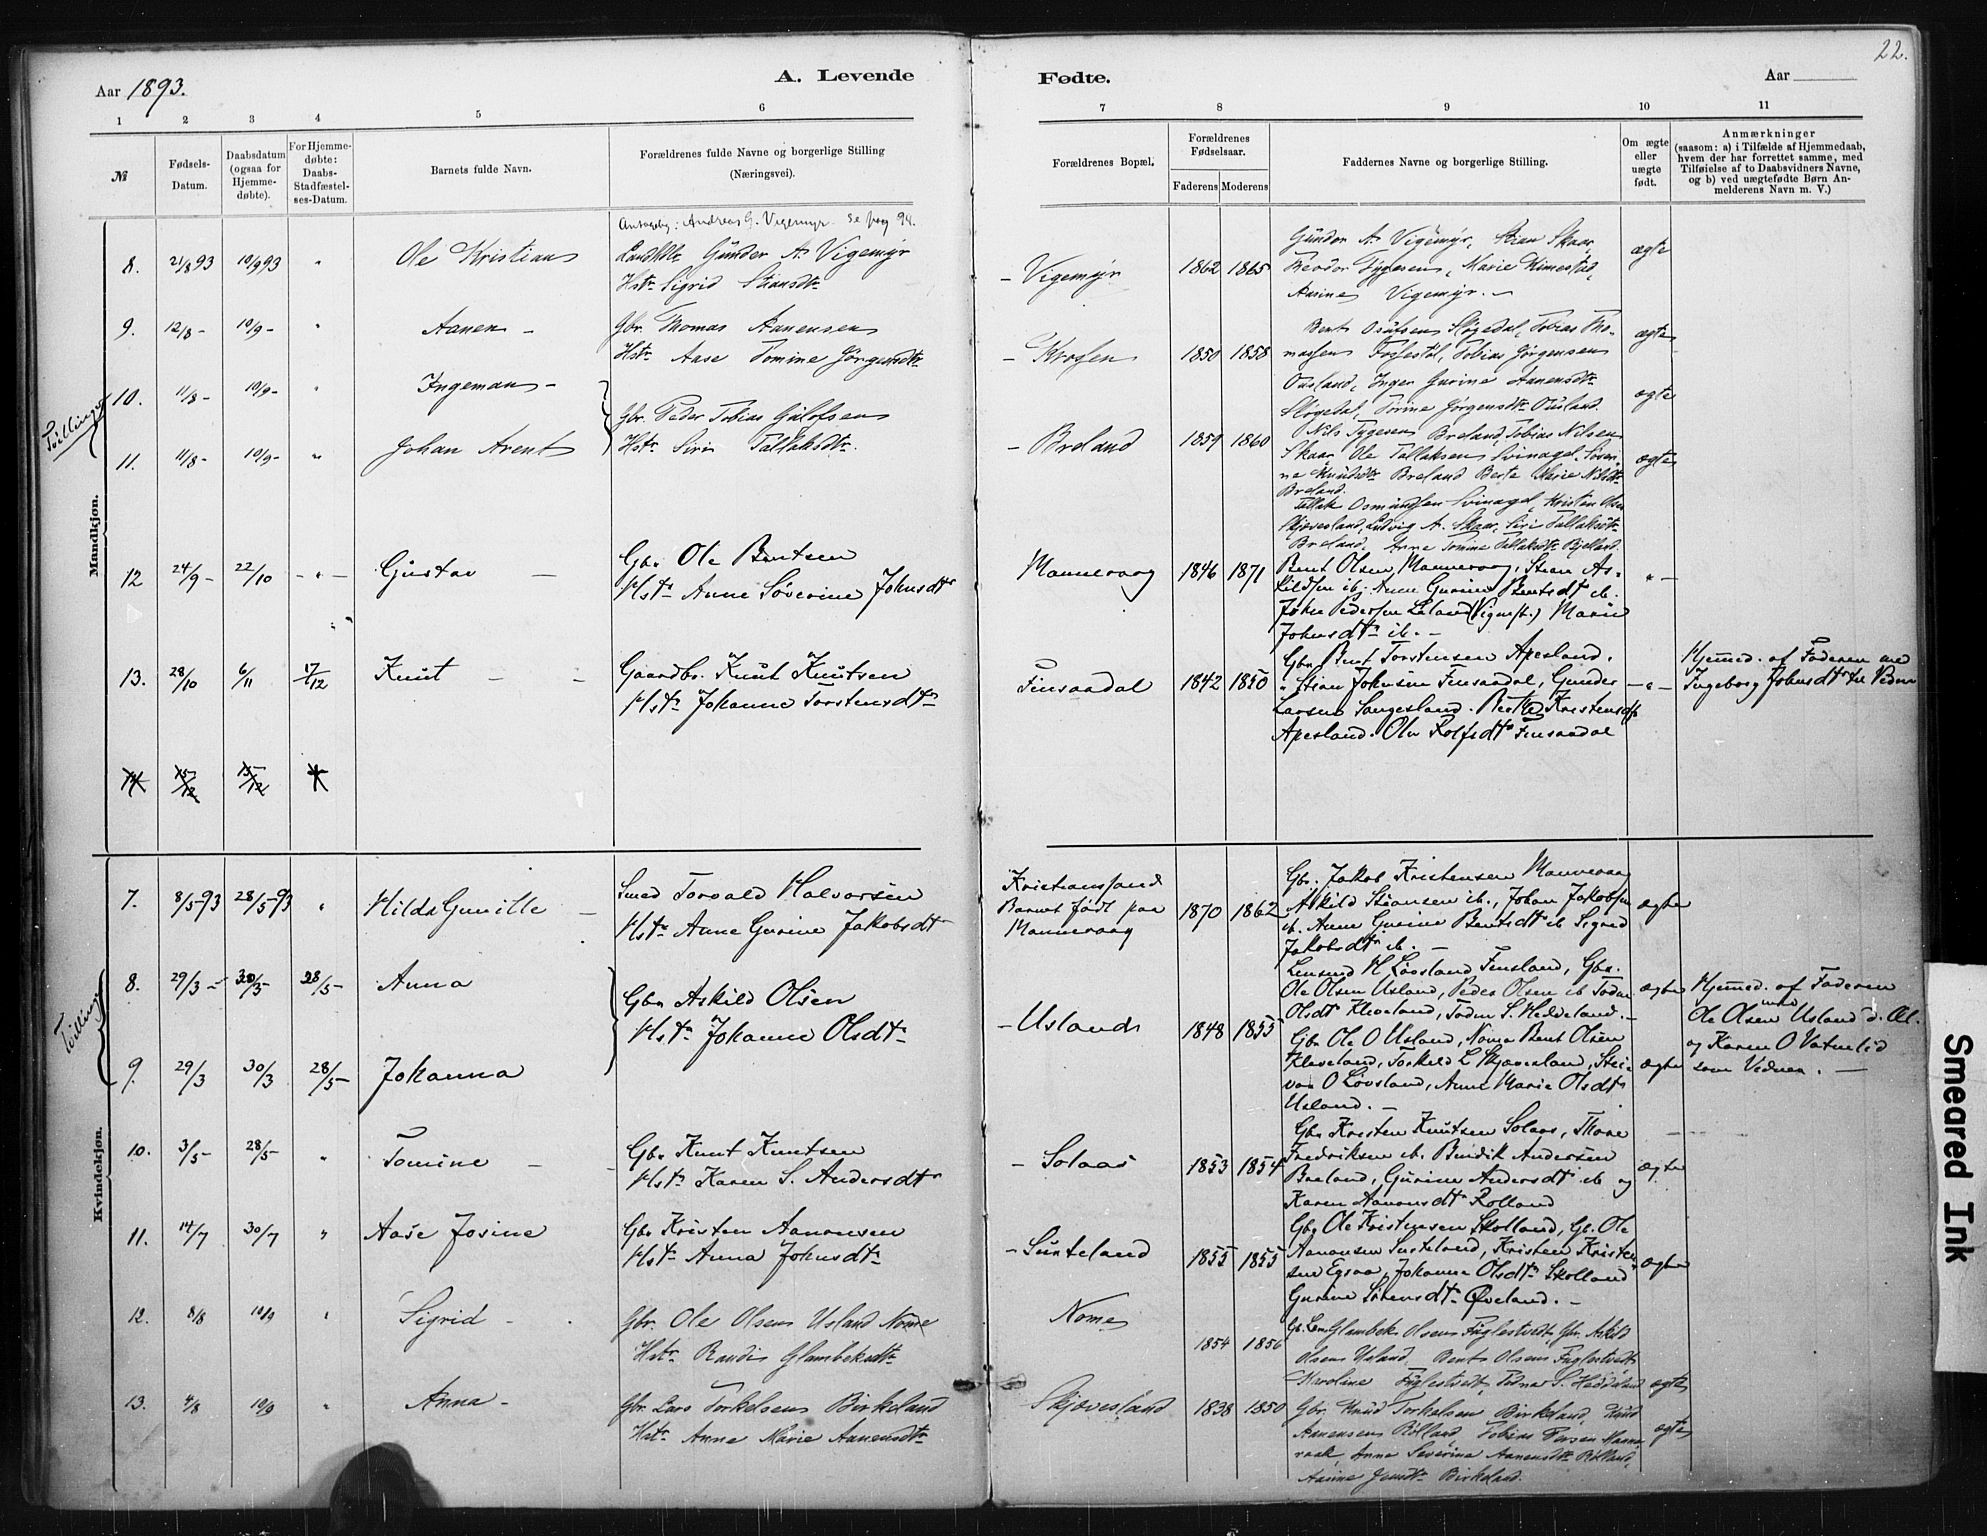 22.
Aar 1893.
A. Levende
Fødte.
Aar
1 2 3 4 5 6 7 8 9 10 11
№
Fødsels-
Datum.
Daabsdatum
(ogsaa for
Hjemme-
døbte).
For Hjemme-
døbte:
Daabs-
Stadfæstel-
ses-Datum.
Barnets fulde Navn.
Forældrenes fulde Navne og borgerlige Stilling
(Næringsvei).
Forældrenes Bopæl.
Forældrenes
Fødselsaar.
Faderens
Moderens
Faddernes Navne og borgerlige Stilling.
Om ægte
eller
uægte
født.
Anmærkninger
(saasom: a) i Tilfælde af Hjemmedaab,
hvem der har forrettet samme, med
Tilføielse af to Daabsvidners Navne,
og b) ved uægtefødte Børn An-
melderens Navn m. V.)
Mandkjøn.
Andreas G. Vigemyr se pag 98.
8. 21/8 93 10/9 93 " Ole Kristian
Gunder A. Vigemyr
Hstr Sigrid Stiansdtr
- Vigemyr 1862 1865
Gunder A. Vigemyr, Stian Skaar,
Teodor Tygesen, Marie Kimestad,
Aanine Vigemyr. -
ægte
9. 12/8 - 10/9 - " Aanen -
Gbr. Thomas Aanensen
Hstr Aase Tomine Jørgensdtr
- Krossen 1850 1858
Bent Osufsen Støgedal, Tobias Tho-
massen Fosfestøl, Tobias Jørgensen
Ousland, Inger Gurine Aanensdtr
Støgedal, Tomine Jørgensdtr Ousland.
ægte
Tvillinger
10. 11/8 - 10/9 - " Ingeman -
11. 11/8 - 10/9 - " Johan Arent
Gbr. Peder Tobias Gulofsen
Hstr Siri Tallaksdtr.
- Breland 1859 1860
Nils Tygesen Breland, Tobias Nilsen
Skaar, Ole Tallaksen Svinagel, Severi-
ne Knudsdtr Breland Berte Marie Nilsdtr
Breland.
Tallak Osmundsen Svinagel, Kristen Olsen
Skjævesland, Ludvig A. Skaar, Siri Tallaksdtr
Breland, Anne Tomine Tallaksdtr Bjelland.
ægte
ægte
12 24/9 - 22/10 - " - Gustav -
Gbr Ole Bentsen
Hstr Anne Søverine Johnsdtr
Mannevaag 1846 1871
Bent Olsen Mannevaag, Stian As-
kildsen ib, Anne Gurine Bentsdtr ib.
John Pedersen Leland (Vigmst.) Marie
Johnsdtr ib. -
" -
13. 28/10 6/11 17/12 Knut - -
Gaardbr. Knut Knutsen
Hstr Johanne Torstensdtr
Finsaadal 1842 1850
Gbr Bent Torstensen Apesland.
" Stian Johnsen Finsaadal, Gunder
Larsen Sangesland. Berthe Kristensdtr
Apesland. Ole Rolfsdtr Finsaadal
- " -
Hjemmed. af Faderen med
Ingeborg Johnsdtr til Vidne
14 15/12 15/12
Kvindekjøn.
7. 8/5-93 28/5-93 " Hilda Gunille -
Smed Torvald Halvorsen
Hstr Anne Gurine Jakobsdtr
Kristianssand
Barnet født paa
Mannevaag
1870 1862
Gbr. Jakob Kristensen Mannevaag
Askild Stiansen ib., Johan Jakobsen
ib. Anne Gurine Bentsdtr ib Sigrid
Jakobsdtr ib. -
ægte
Tvillinger
8. 29/3 - 30/3 28/5 - Anna
9. 29/3 30/3 28/5 - Johanna
Gbr Askild Olsen
Hstr Johanne Olsdtr
- Usland 1848 1855
Lensmd H Løvsland Finsland, Gbr.
Ole Olsen Usland, Peder Olsen ib Todne
Olsdtr Kleveland, Todne S. Heddeland. -
Gbr Ole O Usland, Nome Bent Olsen
Kleveland, Torkild L Skjævesland, Stei-
nar O Løvsland, Anne Marie Olsdtr
Usland. -
ægte
ægte
Hjemmed. af Faderen
med
Ole Olsen Usland d. Æl.
og Karen O Vatnelid
som Vidner. -
10. 3/5 - 28/5 - " Tomine -
Gbr Knut Knutsen
Hstr Karen S. Andersdtr
- Solaas 1853 1854
Gbr Kristen Knutsen Solaas, Thore
Fredriksen ib. Bendik Andersen
Breland, Gurine Andersdtr ib og
Karen Aanonsdtr Rolland
ægte
11. 14/7 30/7 " Aase Josine
Gbr Kristen Aanonsen
Hstr Anna Johnsdtr
- Sunteland 1855 1855
Gbr Ole Kristensen Skolland, Gb. Ole
Aanonsen Sunteland, Kristen Kristen-
sen Egsaa, Johanne Olsdtr Skolland
Gurine Sørensdtr Øveland. -
ægte
12. 8/8 10/9 " Sigrid -
Gbr. Ole Olsen Usland Nome
Hstr. Randi Glambeksdtr
Nome 1854 1856
Gb. Lm Glambek Olsen Fuglestvedt Gbr. Askild
Olsen Usland, Bent Olsen Fuglestvedt
Karoline Fuglestvedt, Todne S. Heddeland
ægte
13. 4/8 10/9 " Anna -
Gbr. Lars Torkelsen Birkeland
Hstr. Anne Marie Aanensdtr
Skjævesland 1838 1850
Gbr. Knud Torkelsen Birkeland, Knud
Aanensen Rolland Tobias Tersen Manne-
vaak, Anne Severine Aanensdtr Rolland,
Aanine Jensdtr Birkeland.
ægte
Smeared Ink